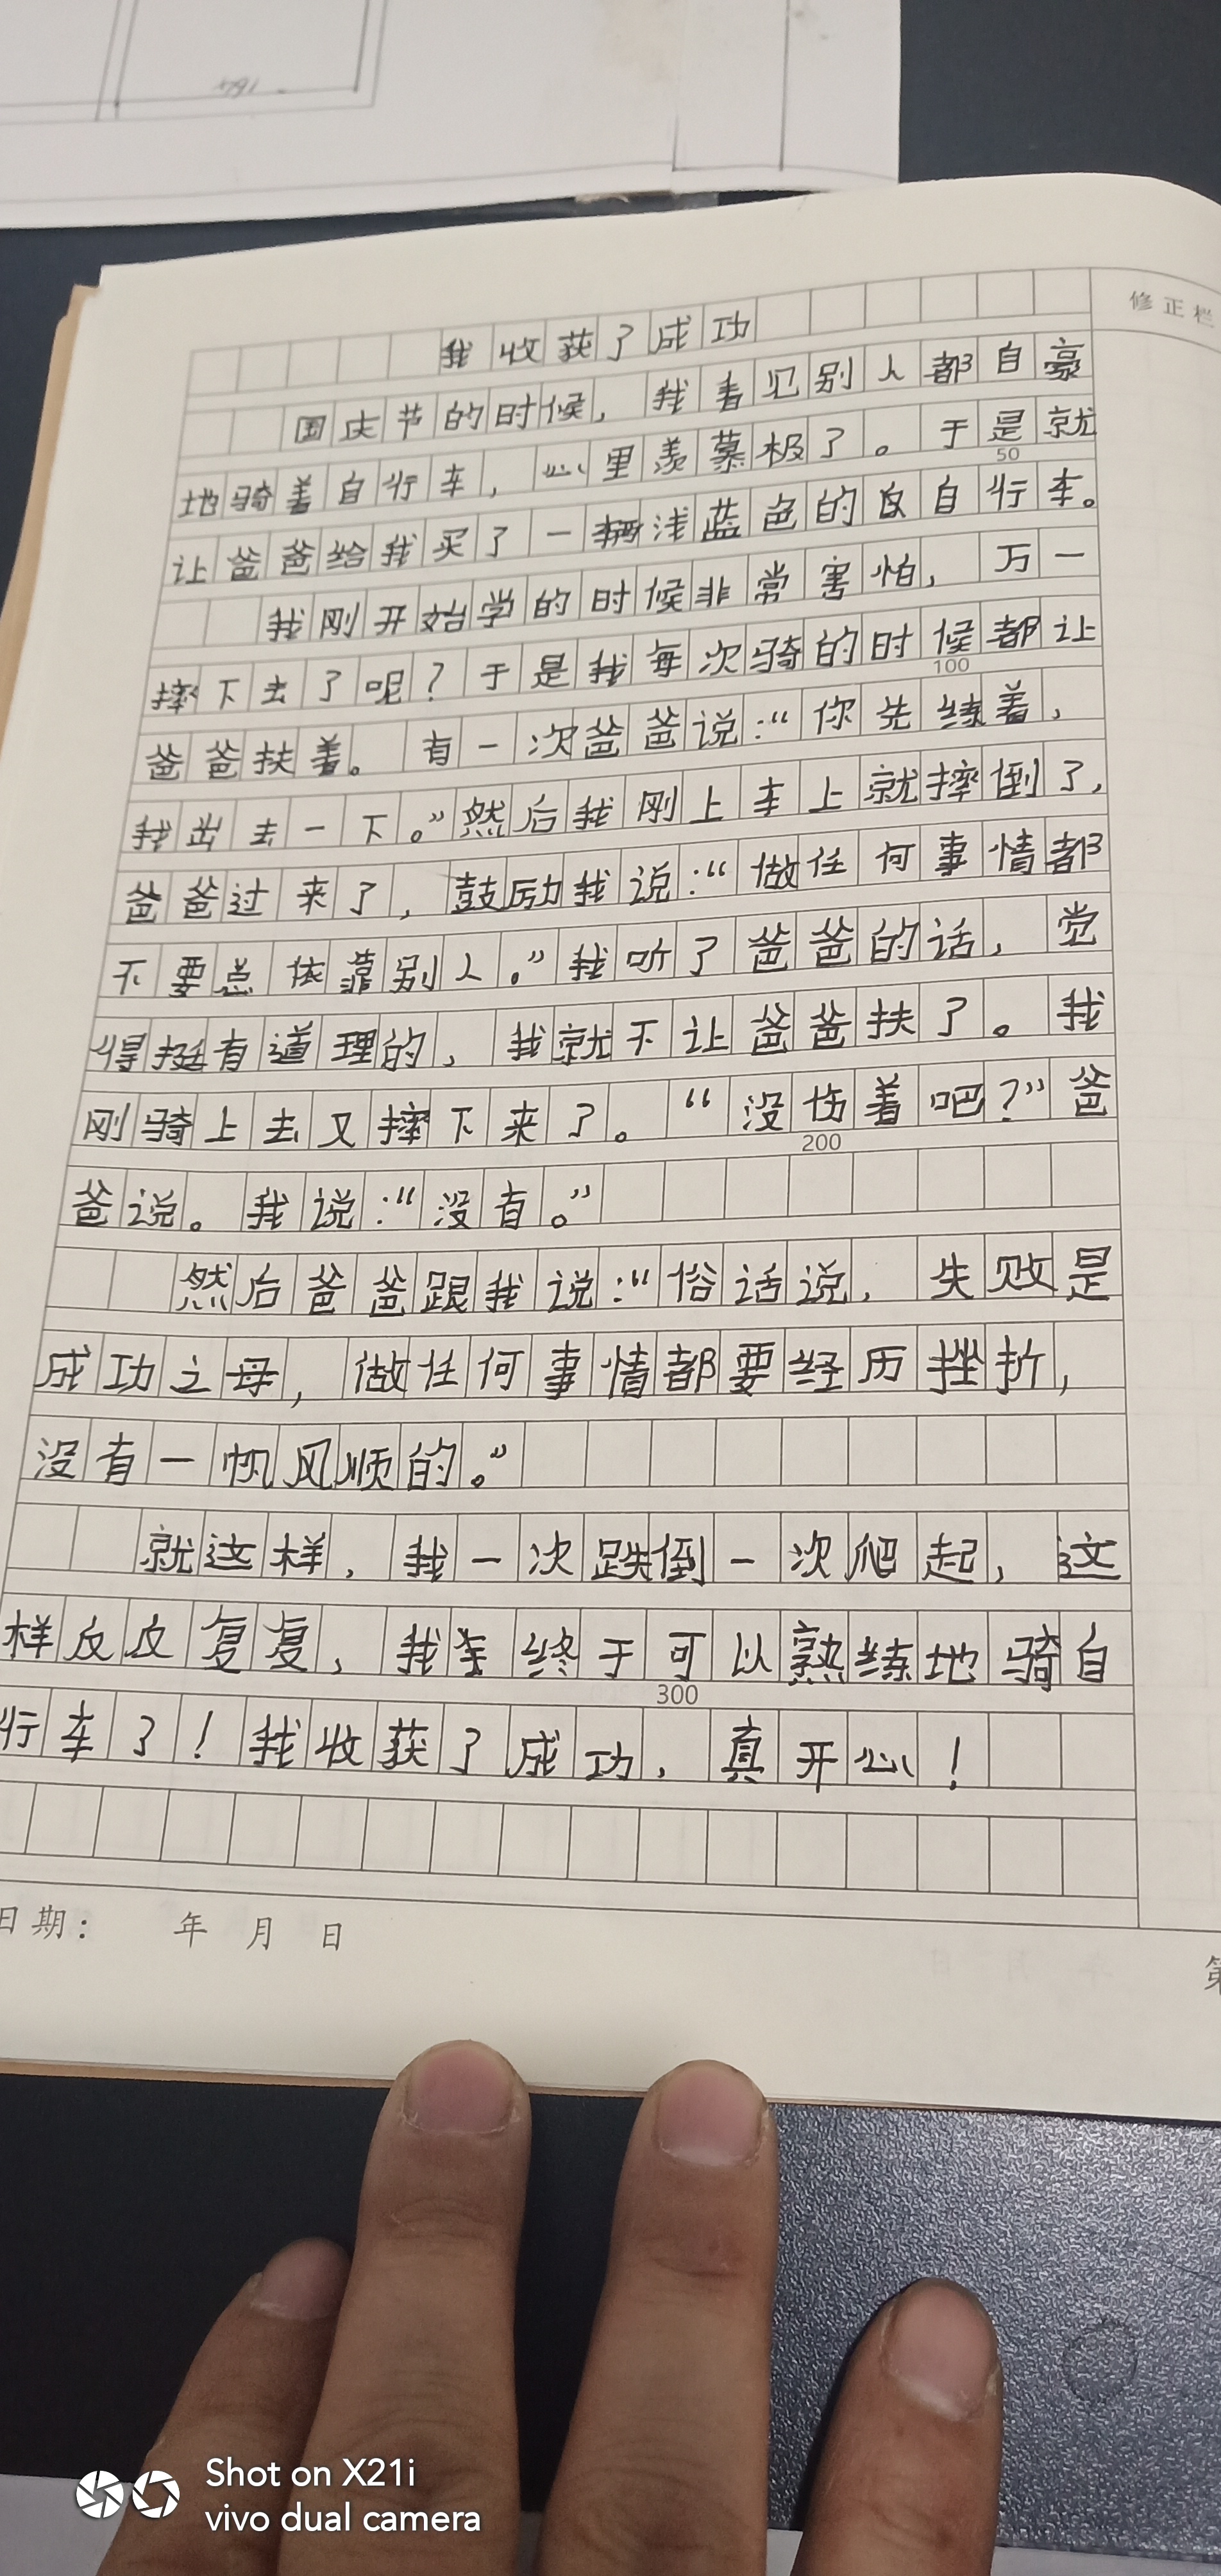 修正栏
我收获了成功
国庆节的时候，我看见别人都自豪
地骑着自行车，心里羡慕极了。于是就
50
让爸爸给我买了一辆浅蓝色的自行车。
我刚开始学的时候非常害怕，万一
摔下去了呢？于是我每次骑的时候都让
100
爸爸扶着。有一次爸爸说：“你先练着，
我出去一下。”然后我刚上车上就摔倒了，
爸爸过来了，鼓励我说：“做任何事情都
不要总依靠别人。”我听了爸爸的话，觉
得挺有道理的，我就不让爸爸扶了。我
刚骑上去又摔下来了。“没伤着吧？”爸
200
爸说。我说：“没有。”
然后爸爸跟我说：“俗话说，失败是
成功之母，做任何事情都要经历挫折，
没有一帆风顺的。”
就这样，我一次跌倒一次爬起，这
样反反复复，我终于可以熟练地骑自
300
行车了！我收获了成功，真开心！
日期： 年 月 日
第
Shot on X21i
vivo dual camera